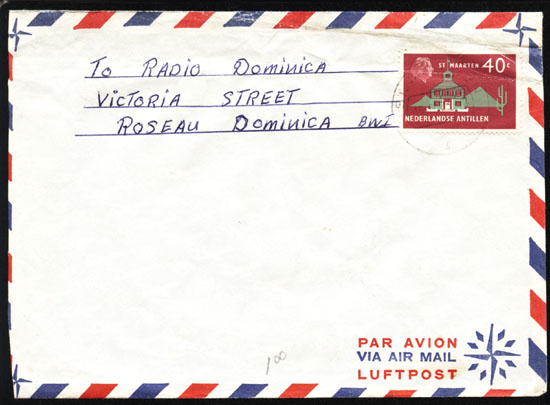 To RADIO DomiNicA
VicToRiA STREET
ROSEAU DomiNicA BWI
ST MAARTEN 40c
NEDERLANDSE ANTILLEN
PAR AVION
VIA AIR MAIL
LUFTPOST
100